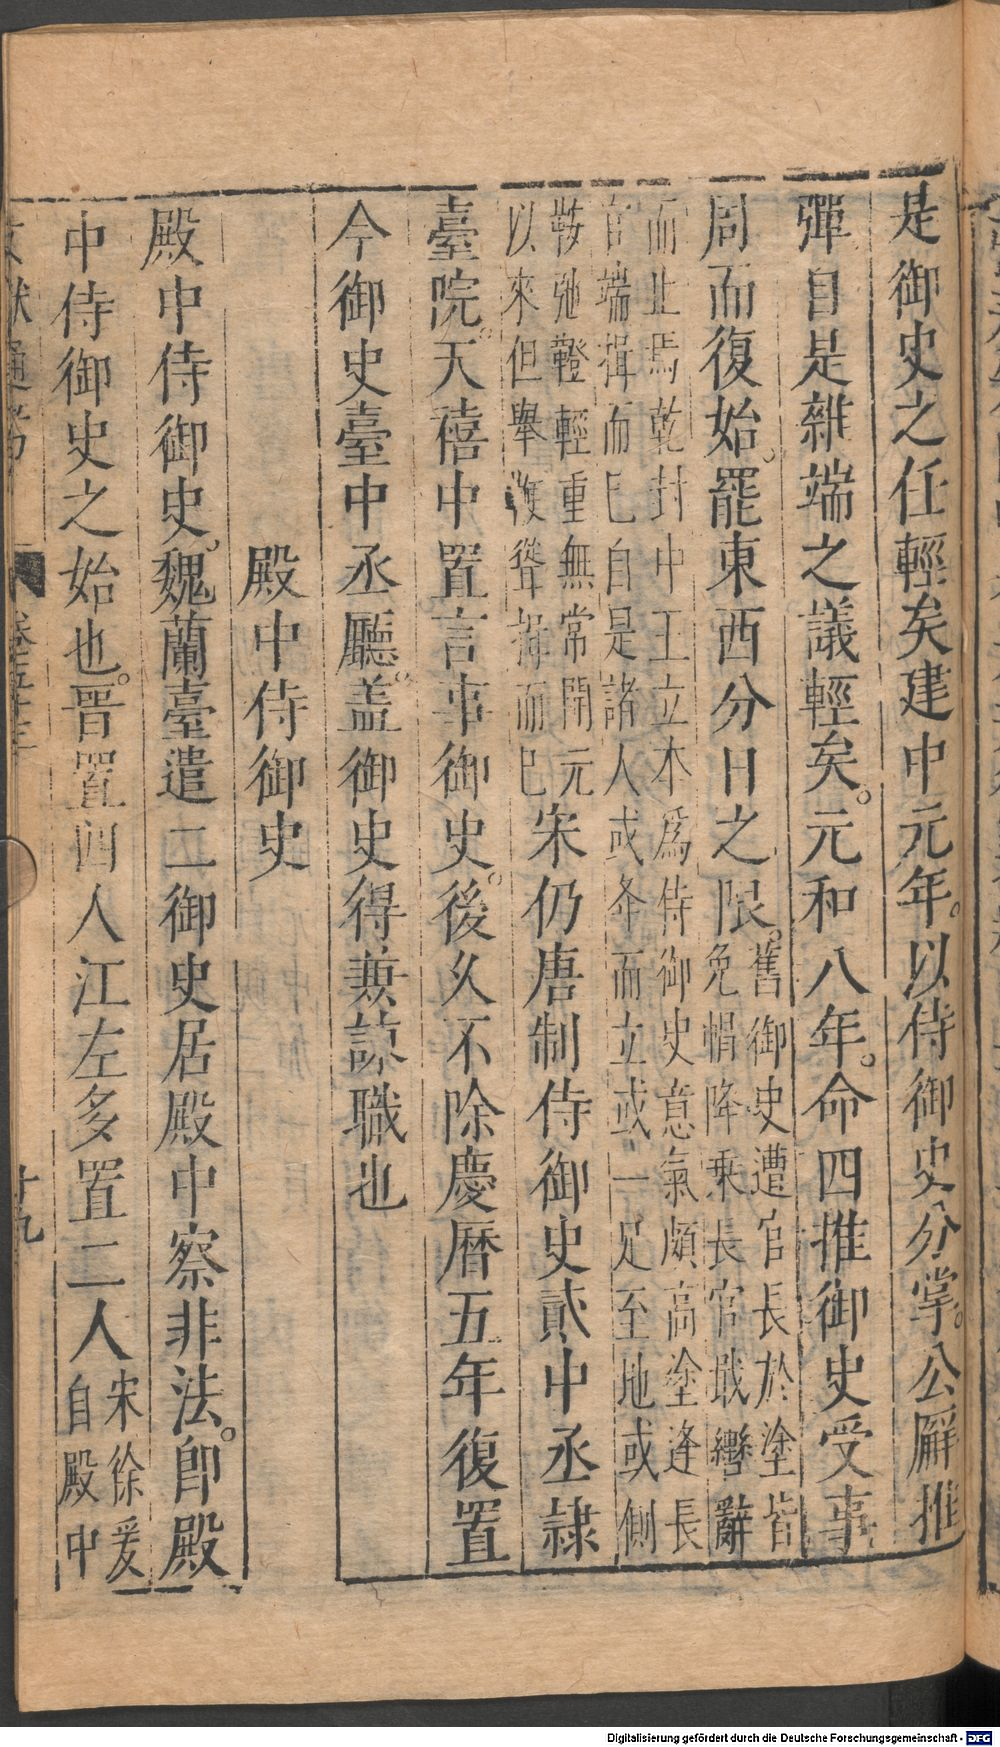 是御史之任輕矣建中元年。以侍御史分掌。公廨推
彈自是雜端之議輕矣。元和八年。命四推御史受事
周而復始。罷東西分日之限。舊御史遭官長於塗皆
免帽降乘長官戢轡辭
而止焉乾封中王立本爲侍御史意氣頗高塗逢長
官端揖而已自是諸人或牟而立或一足至地或側
鞍弛鞾輕重無常開元
以來但舉鞭聳揖而已宋仍唐制侍御史貳中丞隷
臺院。天禧中置言事御史。後久不除慶曆五年復置
今御史臺中丞廳。盖御史得兼諒職也
殿中侍御史
殿中侍御史。魏蘭臺遣二御史居殿中察非法。卽殿
中侍御史之始也。晋置四人江左多置二人宋徐爰
自殿中
文獻通考
卷五十三
十九
Digitalisierung gefördert durch die Deutsche Forschungsgemeinschaft - DFG